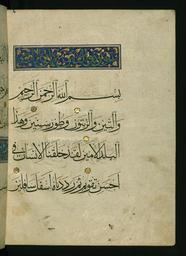 بسم الله الرحمن الرحيم
والتين والزيتون وطور سينين وهذا
البلد الأمين لقد خلقنا الإنسان في
أحسن تقويم ثم رددناه أسفل سافلين